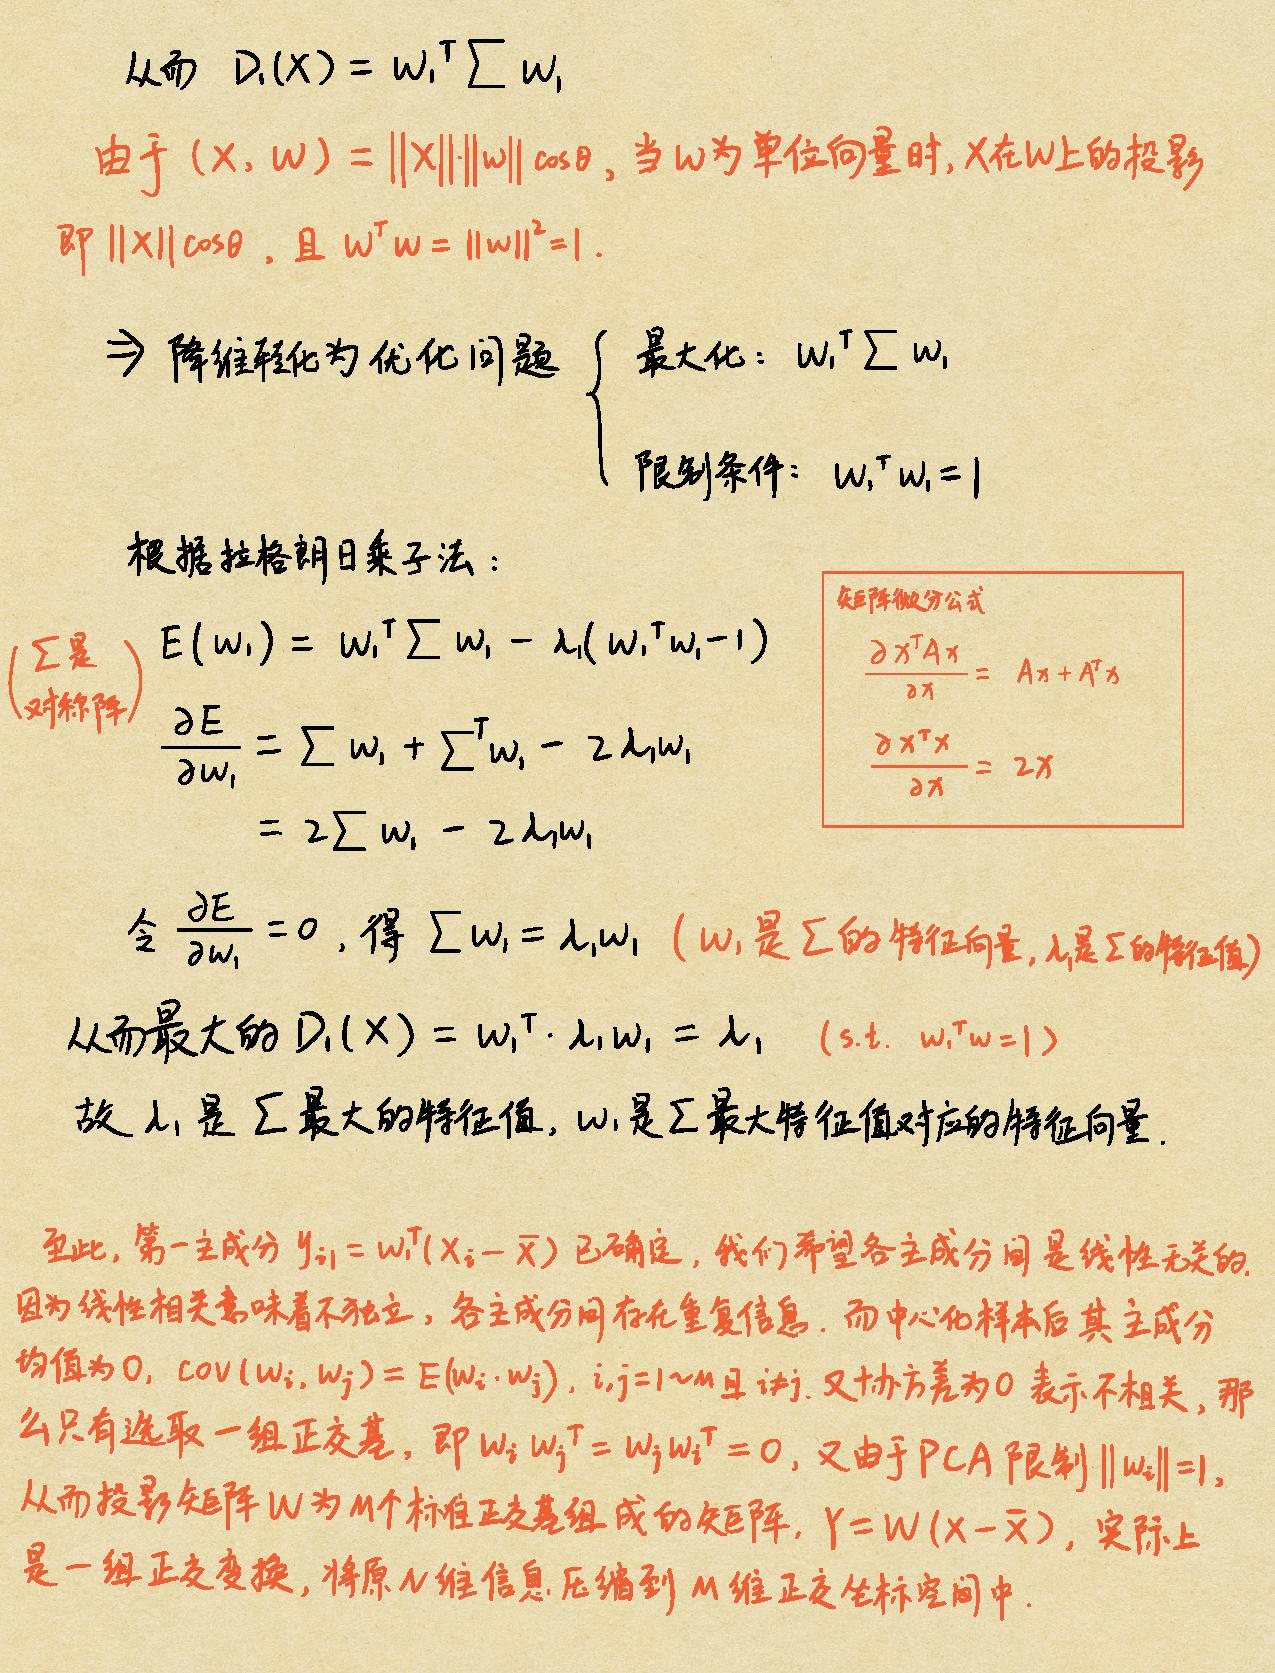 从而 D₁(X) = w₁ᵀ∑ w₁
由于 (X, W) = ||X||·||w|| cosθ, 当W为单位向量时, X在W上的投影
即 ||X|| cosθ, 且 wᵀw = ||w||² = 1.
⇒ 降维转化为优化问题 { 最大化: w₁ᵀ∑ w₁
限制条件: w₁ᵀw₁ = 1
根据拉格朗日乘子法:
E(w₁) = w₁ᵀ∑ w₁ - λ₁(w₁ᵀw₁ - 1)
(∑是
对称阵)
∂E/∂w₁ = ∑ w₁ + ∑ᵀw₁ - 2λ₁w₁
= 2∑ w₁ - 2λ₁w₁
矩阵微分公式
∂xᵀAx/∂x = Ax + Aᵀx
∂xᵀx/∂x = 2x
令 ∂E/∂w₁ = 0, 得 ∑w₁ = λ₁w₁ (w₁是∑的特征向量, λ₁是∑的特征值)
从而最大的 D₁(X) = w₁ᵀ·λ₁w₁ = λ₁ (s.t. w₁ᵀw = 1)
故 λ₁ 是∑最大的特征值, w₁是∑最大特征值对应的特征向量.
至此, 第一主成分 yᵢ₁ = w₁ᵀ(xᵢ - x̄) 已确定, 我们希望各主成分间是线性无关的.
因为线性相关意味着不独立, 各主成分间存在重复信息. 而中心化样本后其主成分
均值为0, cov(wᵢ, wⱼ) = E(wᵢ·wⱼ), i,j=1~M且i≠j. 又协方差为0表示不相关, 那
么只有选取一组正交基, 即 wᵢ wⱼᵀ = wⱼwᵢᵀ = 0, 又由于PCA限制||wᵢ||=1,
从而投影矩阵W为M个标准正交基组成的矩阵, Y = W(X - X̄), 实际上
是一组正交变换, 将原N维信息压缩到M维正交坐标空间中.